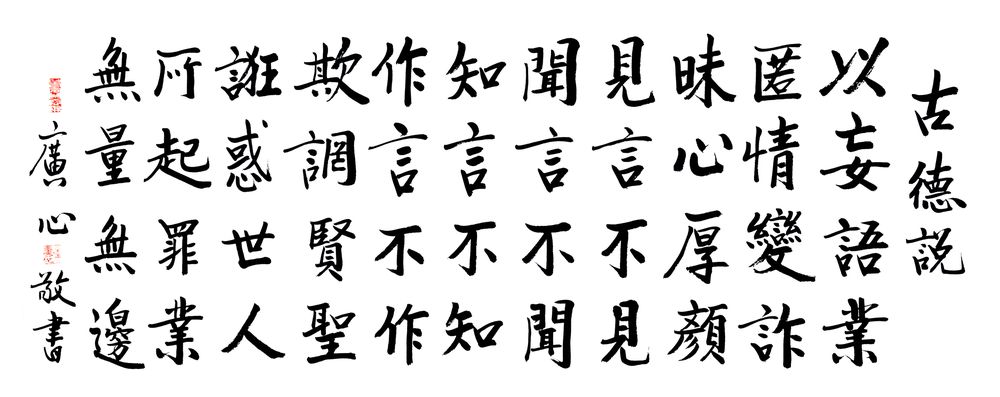 古德説
以妄語業
匿情變詐
昧心厚顏
見言不見
聞言不聞
知言不知
作言不作
欺誷賢聖
誑惑世人
所起罪業
無量無邊
廣心敬書